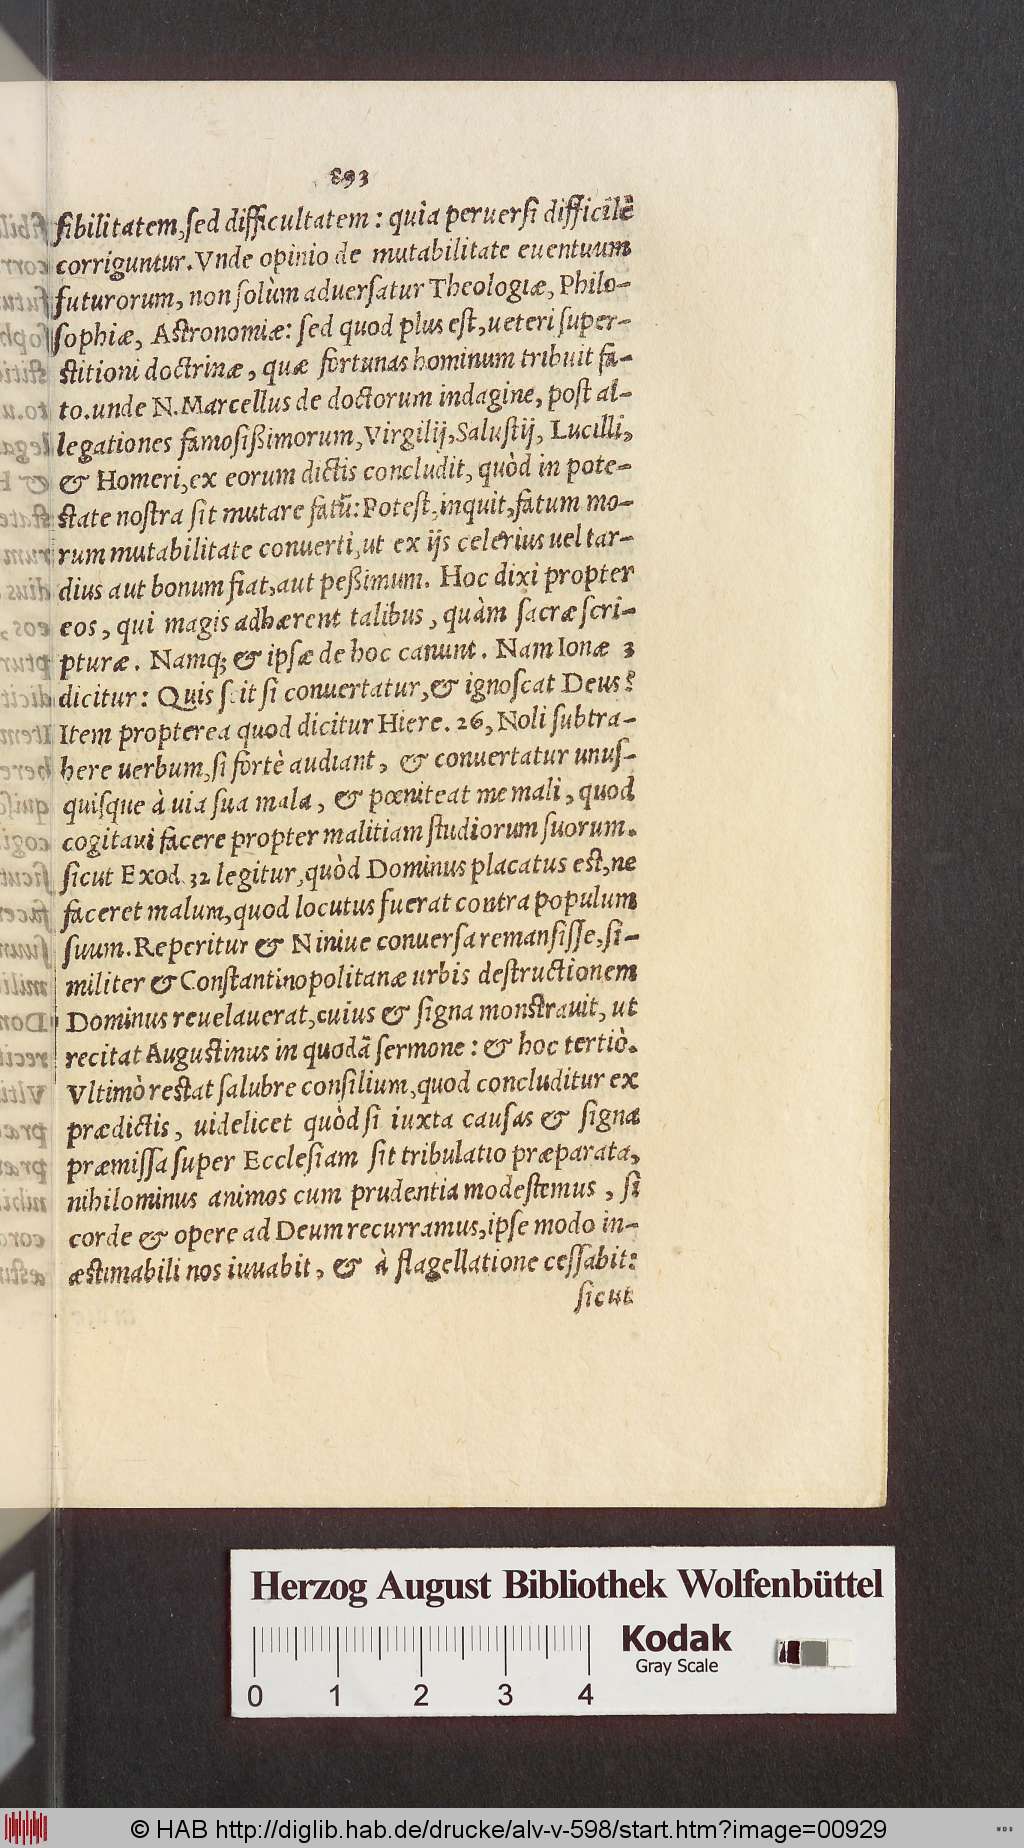 893
sibilitatem, sed difficultatem: quia peruersi difficile
corriguntur. Vnde opinio de mutabilitate euentuum
futurorum, non solùm aduersatur Theologiæ, Philo-
sophiæ, Astronomiæ: sed quod plus est, ueteri super-
stitioni doctrinæ, quæ fortunas hominum tribuit fa-
to. unde N. Marcellus de doctorum indagine, post al-
legationes famosißimorum, Virgilij, Salustij, Lucilli,
& Homeri, ex eorum dictis concludit, quòd in pote-
state nostra sit mutare fatũ: Potest, inquit, fatum mo-
rum mutabilitate conuerti, ut ex ijs celerius uel tar-
dius aut bonum fiat, aut peßimum. Hoc dixi propter
eos, qui magis adhærent talibus, quàm sacræ scri-
pturæ. Namq; & ipsæ de hoc canunt. Nam Ionæ 3
dicitur: Quis scit si conuertatur, & ignoscat Deus?
Item propterea quod dicitur Hiere. 26, Noli subtra-
here uerbum, si fortè audiant, & conuertatur unus-
quisque à uia sua mala, & pœniteat me mali, quod
cogitaui facere propter malitiam studiorum suorum.
sicut Exod. 32 legitur, quòd Dominus placatus est, ne
faceret malum, quod locutus fuerat contra populum
suum. Reperitur & Niniue conuersa remansisse, si-
militer & Constantinopolitanæ urbis destructionem
Dominus reuelauerat, cuius & signa monstrauit, ut
recitat Augustinus in quodã sermone: & hoc tertiò.
Vltimò restat salubre consilium, quod concluditur ex
prædictis, uidelicet quòd si iuxta causas & signa
præmissa super Ecclesiam sit tribulatio præparata,
nihilominus animos cum prudentia modestemus, si
corde & opere ad Deum recurramus, ipse modo in-
æstimabili nos iuuabit, & à flagellatione cessabit:
sicut
Herzog August Bibliothek Wolfenbüttel
Kodak
Gray Scale
0 1 2 3 4
© HAB http://diglib.hab.de/drucke/alv-v-598/start.htm?image=00929